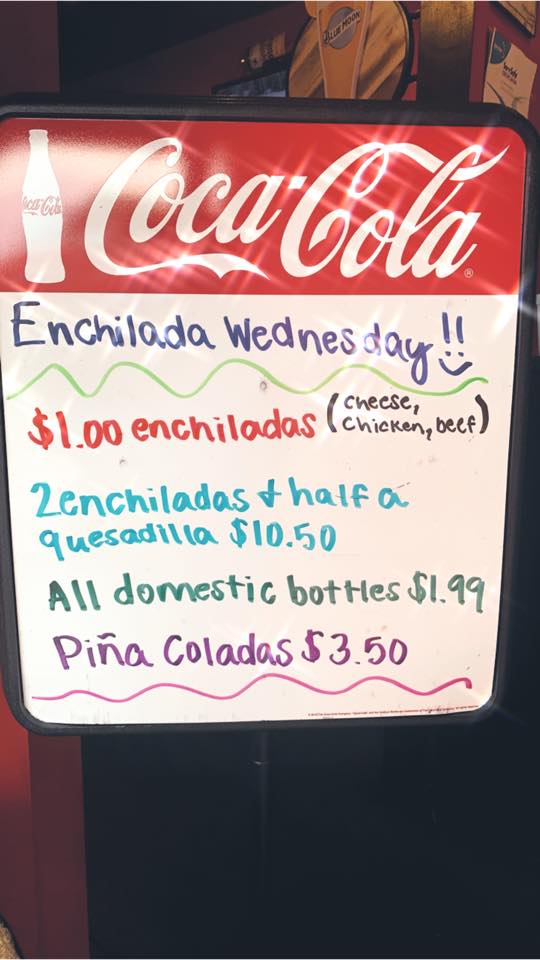 BLUE MOON
Coca-Cola
Coca-Cola®
Enchilada Wednesday!!
$1.00 enchiladas (cheese,
chicken, beef)
2 enchiladas & half a
quesadilla $10.50
All domestic bottles $1.99
Piña Coladas $3.50